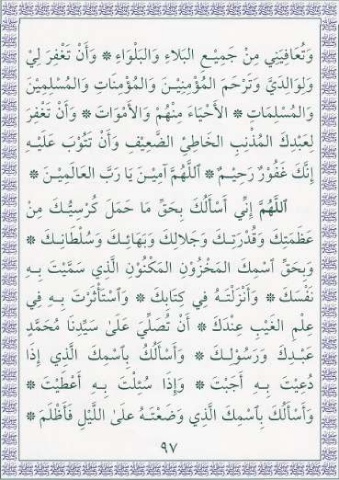 وَتُعَافِيَنِي مِنْ جَمِيْعِ البَلَاءِ وَالبَلْوَاءِ * وَأَنْ تَغْفِرَ لِيْ
وَلِوَالِدَيَّ وَتَرْحَمَ المُؤْمِنِيْنَ وَالمُؤْمِنَاتِ وَالمُسْلِمِيْنَ
وَالمُسْلِمَاتِ * الأَحْيَاءَ مِنْهُمْ وَالأَمْوَاتَ * وَأَنْ تَغْفِرَ
لِعَبْدِكَ المُذْنِبِ الخَاطِئِ الضَّعِيْفِ وَأَنْ تَتُوْبَ عَلَيْهِ
إِنَّكَ غَفُوْرٌ رَحِيْمٌ * اَللَّهُمَّ آمِيْنَ يَا رَبَّ العَالَمِيْنَ *
اَللَّهُمَّ إِنِّي أَسْأَلُكَ بِحَقِّ مَا حَمَلَ كُرْسِيُّكَ مِنْ
عَظَمَتِكَ وَقُدْرَتِكَ وَجَلَالِكَ وَبَهَائِكَ وَسُلْطَانِكَ *
وَبِحَقِّ اسْمِكَ المَخْزُوْنِ المَكْنُوْنِ الَّذِي سَمَّيْتَ بِهِ
نَفْسَكَ * وَأَنْزَلْتَهُ فِي كِتَابِكَ * وَاسْتَأْثَرْتَ بِهِ فِي
عِلْمِ الغَيْبِ عِنْدَكَ * أَنْ تُصَلِّيَ عَلَى سَيِّدِنَا مُحَمَّدٍ
عَبْدِكَ وَرَسُوْلِكَ * وَأَسْأَلُكَ بِاسْمِكَ الَّذِي إِذَا
دُعِيْتَ بِهِ أَجَبْتَ * وَإِذَا سُئِلْتَ بِهِ أَعْطَيْتَ *
وَأَسْأَلُكَ بِاسْمِكَ الَّذِي وَضَعْتَهُ عَلَى اللَّيْلِ فَأَظْلَمَ *
٩٧